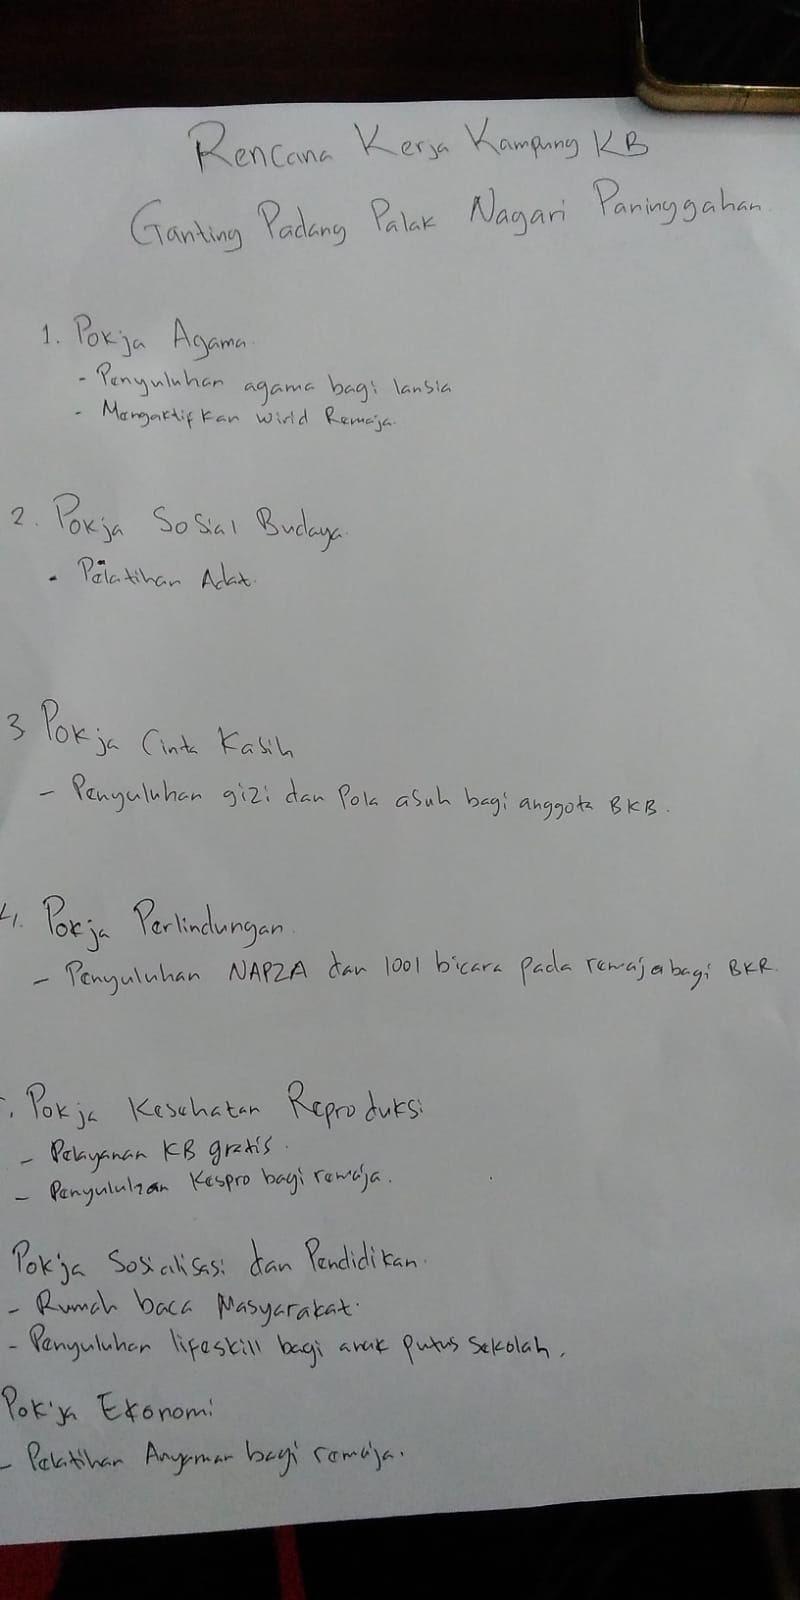 Rencana Kerja Kampung KB
Ganting Padang Palak Nagari Paninggahan.
1. Pokja Agama.
- Penyuluhan agama bagi lansia
- Mengaktifkan wirid Remaja.
2. Pokja Sosial Budaya.
- Pelatihan Adat.
3 Pokja Cinta Kasih
- Penyuluhan gizi dan Pola asuh bagi anggota BKB.
4. Pokja Perlindungan.
- Penyuluhan NAPZA dan 1001 bicara pada remaja bagi BKR.
. Pokja Kesehatan Reproduksi
- Pelayanan KB gratis.
- Penyuluhan Kespro bagi remaja.
Pokja Sosialisasi dan Pendidikan.
- Rumah baca Masyarakat.
- Penyuluhan lifeskill bagi anak putus Sekolah.
Pokja Ekonomi
- Pelatihan Anyaman bagi remaja.